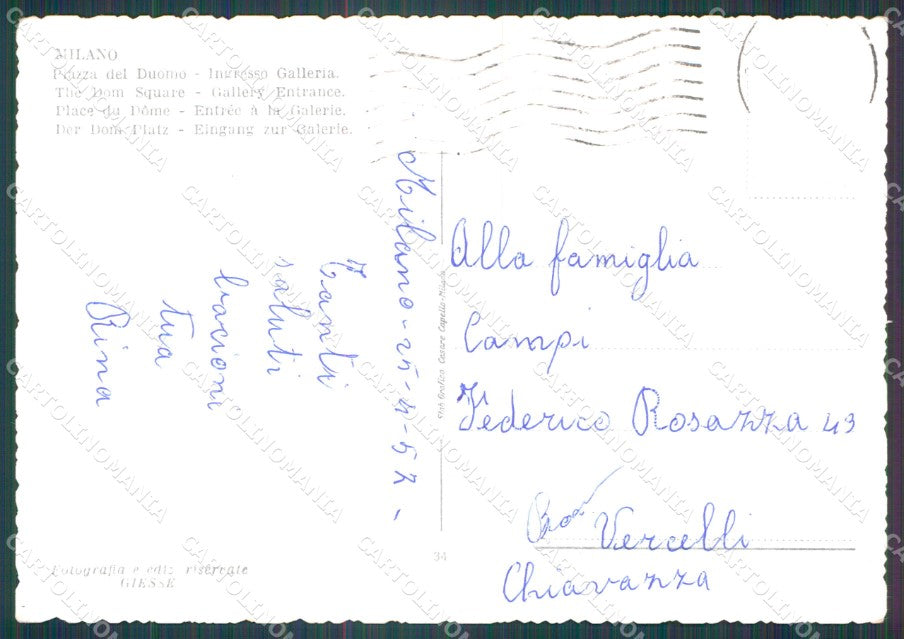 MILANO
Piazza del Duomo - Ingresso Galleria.
The Dom Square - Gallery Entrance.
Place du Dôme - Entrée à la Galerie.
Der Dom Platz - Eingang zur Galerie.
Tanti
saluti
bacioni
tua
Rina
Fotografia e ediz. riservate
GIESSE
Stab Grafico Cesare Capello - Milano
34
Alla famiglia
Campi
Federico Rosazza 49
Vercelli
Chiavazza
CARTOLINOMANIA